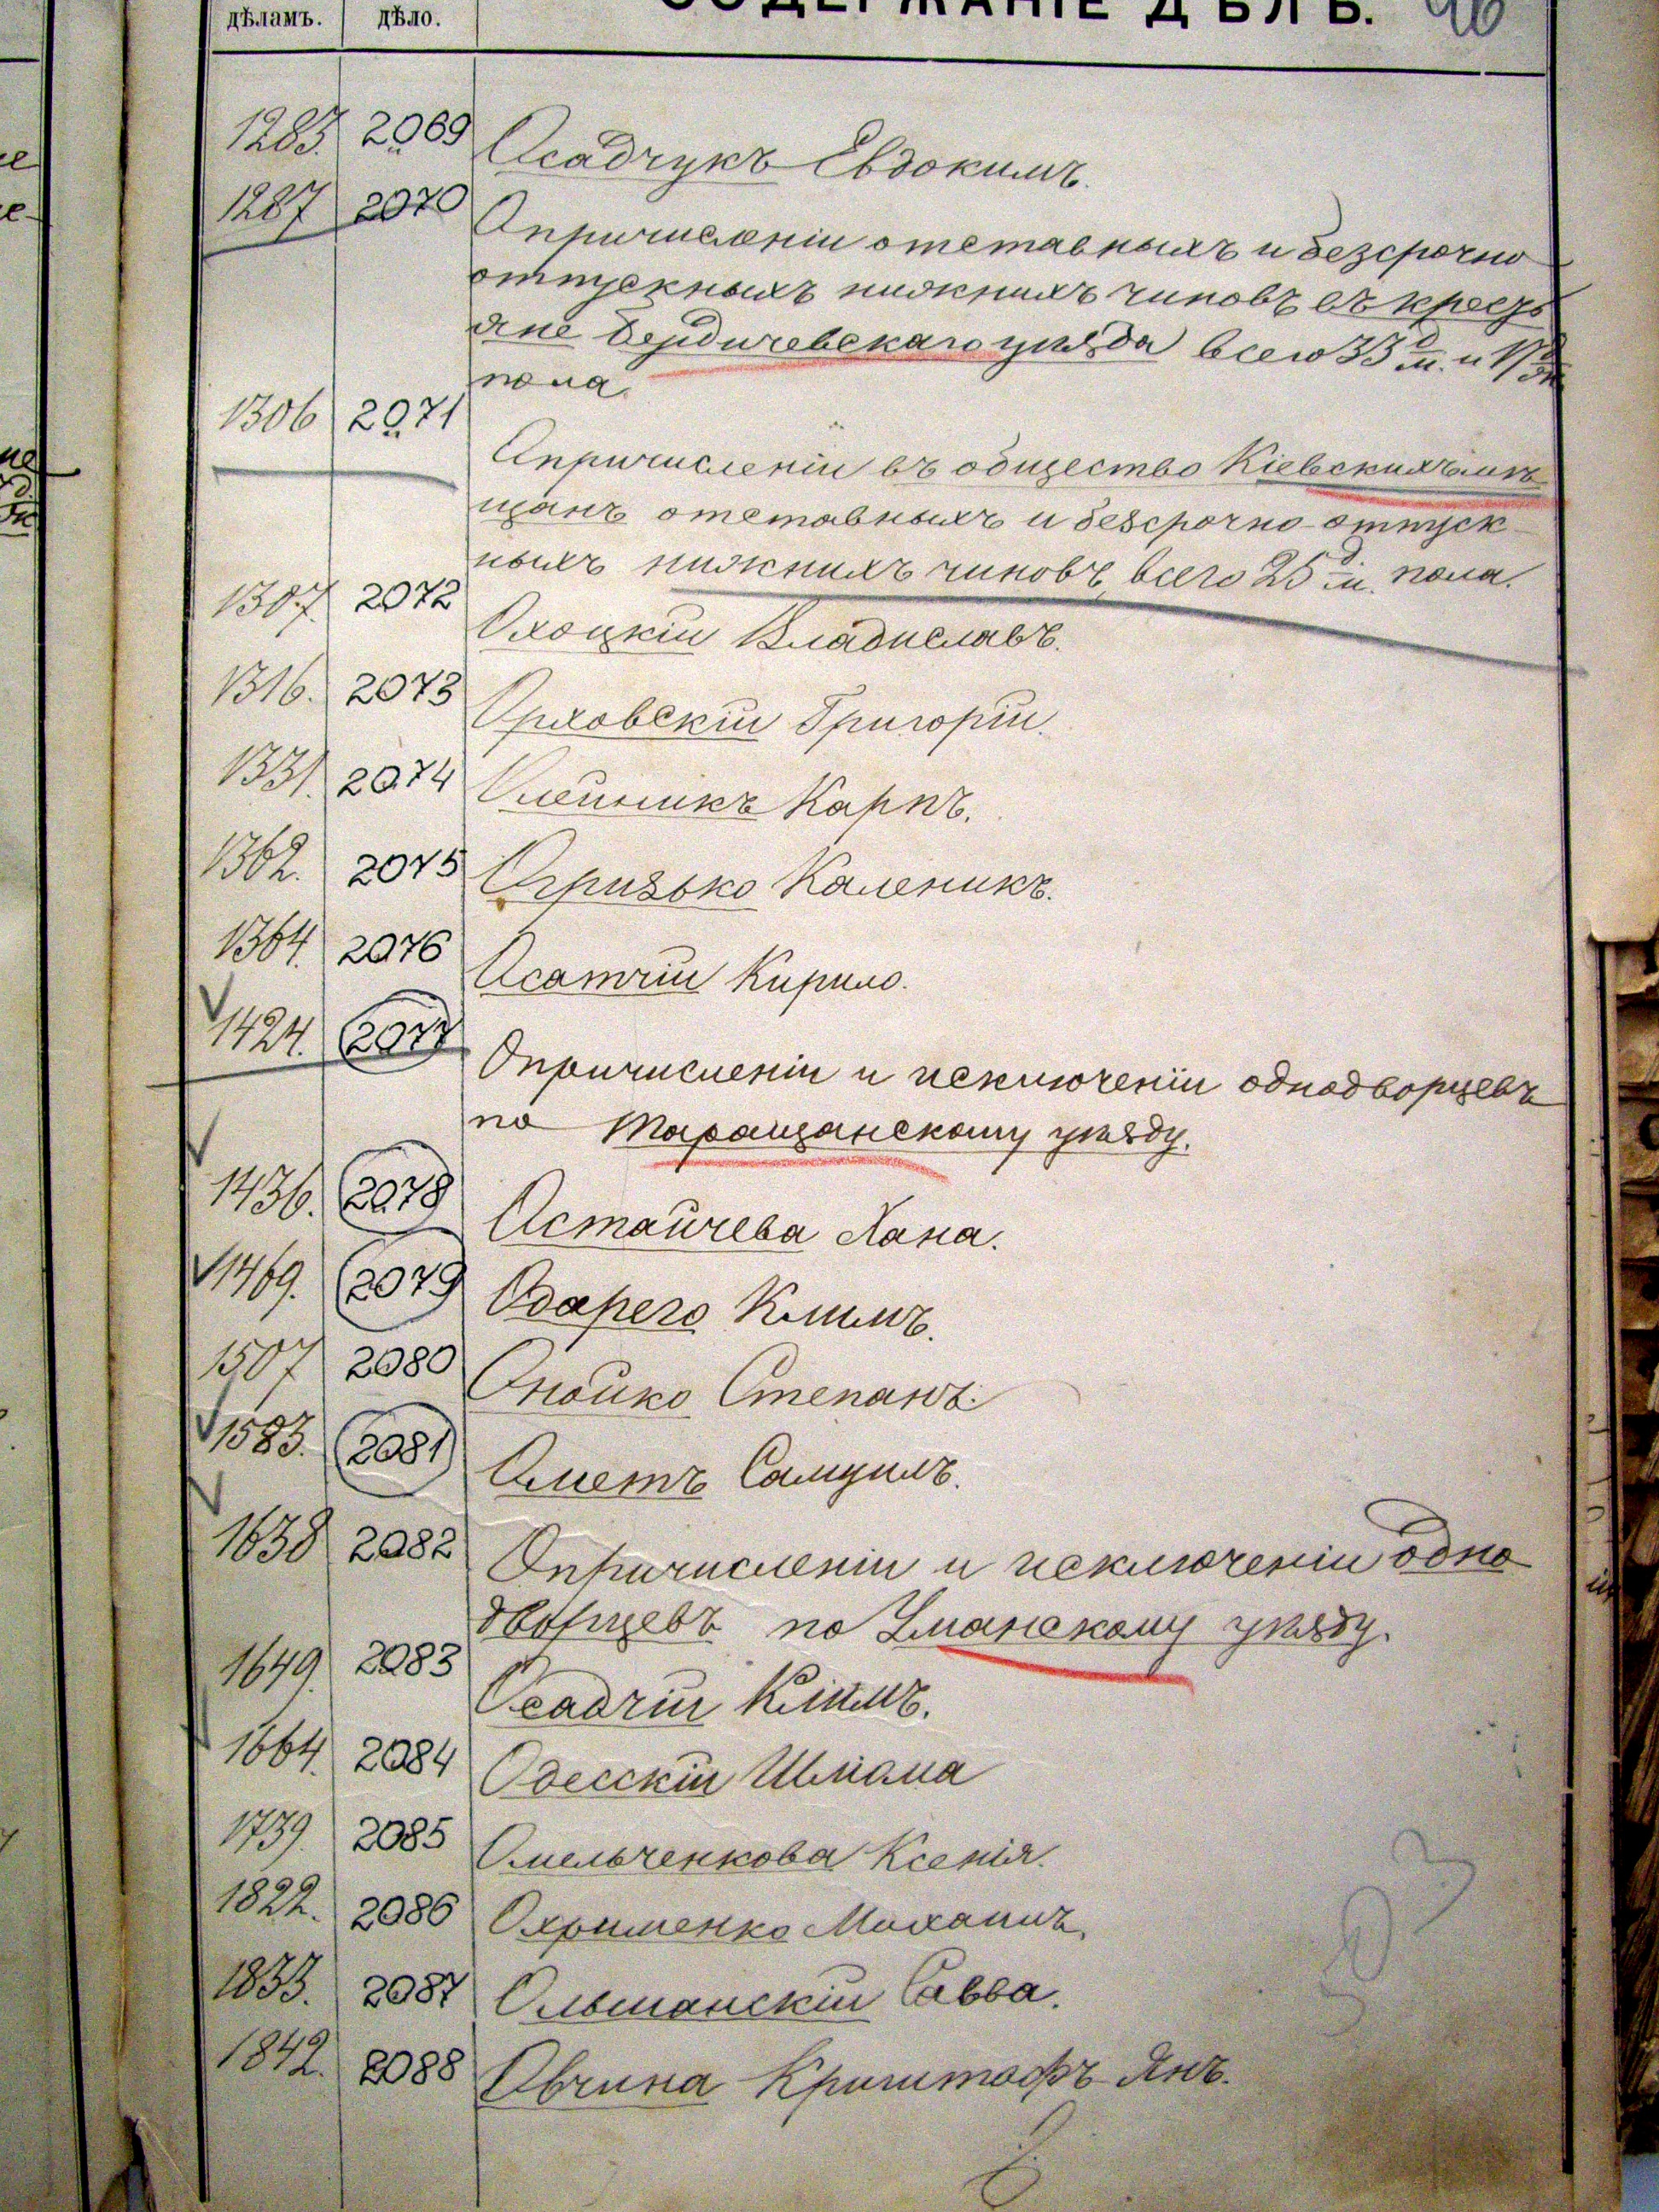 дѣламъ. дѣло. СОДЕРЖАНІЕ ДѢЛЪ. 46
1283. 2069 Осадчукъ Евдокимъ.
1287 2070 О причисленіи отставныхъ и безсрочно
отпускныхъ нижнихъ чиновъ въ кресть
яне Бердичевскаго уѣзда всего 33 д. м. и 17 д. ж.
пола
1306 2071 О причисленіи въ общество Кіевскихъ мѣ
щанъ отставныхъ и безсрочно-отпуск
ныхъ нижнихъ чиновъ, всего 25 д. м. пола.
1307. 2072 Охоцкій Владиславъ.
1316. 2073 Орховскій Григорій.
1331. 2074 Олейникъ Карпъ.
1362. 2075 Огризько Каленикъ.
1364. 2076 Осатчій Кирило.
1424. 2077 О причисленіи и исключеніи однодворцевъ
по Таращанскому уѣзду.
1436. 2078 Остайчева Хана.
1469. 2079 Одарего Климъ.
1507 2080 Онойко Степанъ.
1583. 2081 Ометъ Самуилъ.
1638 2082 О причисленіи и исключеніи одно
дворцевъ по Уманскому уѣзду.
1649. 2083 Осадчій Климъ.
1664. 2084 Одесскій Шліома
1739. 2085 Омельченкова Ксенія.
1822. 2086 Охрименко Михаилъ.
1833. 2087 Ольшанскій Савва.
1842. 2088 Овчина Криштофъ-Янъ.